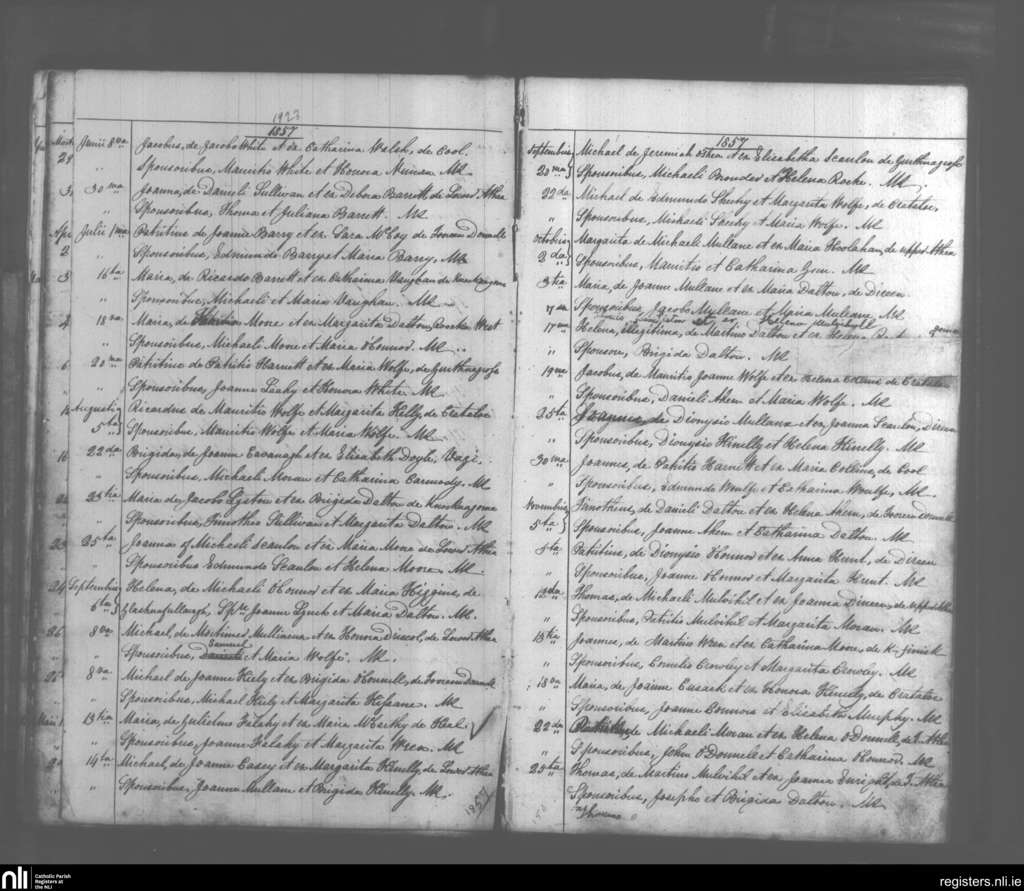 1923
1857
Junii 8va Jacobus, de Jacobo White et ex Catharina Walsh, de Cool.
" Sponsoribus, Mauritio White et Honora Nunan. Ms
30ma Joanna, de Danieli Sullivan et ex Debora Barrett de Lower Athea
" Sponsoribus, Thoma et Juliana Barrett. Ms
Julii 1ma Patritius de Joanne Barry et ex Sara McCoy de
2 Sponsoribus, Edmundo Barry et Maria Barry. Ms
3 16ta Maria, de Ricardo Barrett et ex Catharina Vaughan de Knocknagorna
" Sponsoribus, Michaeli et Maria Vaughan. Ms
4 18va Maria, de Moore et ex Margarita Dalton, West
" Sponsoribus, Michaeli Moore et Maria O'Connor. Ms
6 20ma Patritius de Patritio Harnett et ex Maria Wolfe, de Gurthnagross
" Sponsoribus, Joanne Leahy et Honora White. Ms
Augusti Ricardus de Mauritio Wolfe et Margarita Kelly, de Cratatloe
5ta } Sponsoribus, Mauritio Wolfe et Maria Wolfe. Ms
16 22da Brigida, de Joanne Cavanagh et ex Elisabeth Doyle, Vagi.
Sponsoribus, Michaeli Moran et Catharina Carmody. Ms
23tia Maria de Jacobo Lyston et ex Brigida Dalton de Knocknagorna
Sponsoribus, Timotheo Sullivan et Margarita Dalton. Ms
23 25ta Joanna of Michaeli Scanlon et ex Maria Mone de Lower Athea
" Sponsoribus Edmundo Scanlon et Helena Moore. Ms
24 Septembris Helena, de Michaeli O'Connor et ex Maria Higgins, de
6ta } Sprs Joanne Lynch et Maria Dalton. Ms
26 8va Michael, de Mortimer Mullineux et ex Honora de Lower Athea
Samuel
" Sponsoribus, et Maria Wolfe. Ms
8va Michael de Joanne Kiely et ex Brigida O'Connell, de
" Sponsoribus, Michael Kiely et Margarita Kissane. Ms
13tia Maria, de Gulielmo Falahy et ex Maria McCarthy de Keal
" Sponsoribus, Joanne Falahy et Margarita Wren. Ms
14ta Michael, de Joanne Casey et ex Margarita Kinelly, de Lower Athea
" Sponsoribus, Joanne Mullane et Brigida Kinelly. Ms
1857
1857
Septembris Michael de Jeremiah O'Shea et ex Elisabetha Scanlon de Gurthnagross
20ma } Sponsoribus, Michaeli Brouder et Helena Roche. Ms
22da Michael de Edmundo Sheehy et Margarita Wolfe, de Cratatloe,
" Sponsoribus, Michaeli Sheehy et Maria Wolfe. Ms
Octobris Margarita de Michaeli Mullane et ex Maria Hoolahan, de upper Athea
2da } Sponsoribus, Mauritio et Catharina Ms
3tia Maria, de Joanne Mullane et ex Maria Dalton, de Direen
" Sponsoribus Jacobo Mullane et Maria Mullane, Ms
17ma Helena, Illegitima, de Martino Dalton et ex Helena
" Sponsore, Brigida Dalton. Ms
19na Jacobus, de Mauritio Joanne Wolfe et ex Helena Collins de Cratatloe
Sponsoribus, Danieli Ahern et Maria Wolfe. Ms
25ta Joannes, de Dionysio Mullane et ex Joanna Scanlon, Direen
" Sponsoribus, Dionysio Kinelly et Helena Kinelly. Ms
30ma Joannes, de Patritio Harnett et ex Maria Collins, de Cool
" Sponsoribus, Edmundo Woulfe et Catharina Woulfe. Ms
Novembris Timotheus, de Danieli Dalton et ex Helena Ahern, de
5ta } Sponsoribus, Joanne Ahern et Catharina Dalton. Ms
8va Patritius, de Dionysio O'Connor et ex Anna Hunt, de Direen
" Sponsoribus, Joanne O'Connor et Margarita Hunt. Ms
12da Thomas, de Michaeli Mulvihil et ex Joanna Dineen, de upper Athea
" Sponsoribus, Patritio Mulvihil et Margarita Moran. Ms
13tia Joannes, de Martino Wren et ex Catharina Moore, de
" Sponsoribus, Cornelio Crowley et Margarita Crowley. Ms
18va Maria, de Joanne Cusack et ex Honora Kinelly, de Cratatloe
" Sponsoribus, Joanne Connors et Elisabetha Murphy. Ms
22da de Michaeli Moran et ex Helena O'Donnell, de L. Athea
" Sponsoribus, John O'Donnell et Catharina O'Connor. Ms
25ta Thomas, de Martino Mulvihil et ex Joanna Enright, de L. Athea
Sponsoribus, Josepho et Brigida Dalton. Ms
nli Catholic Parish Registers at the NLI
registers.nli.ie